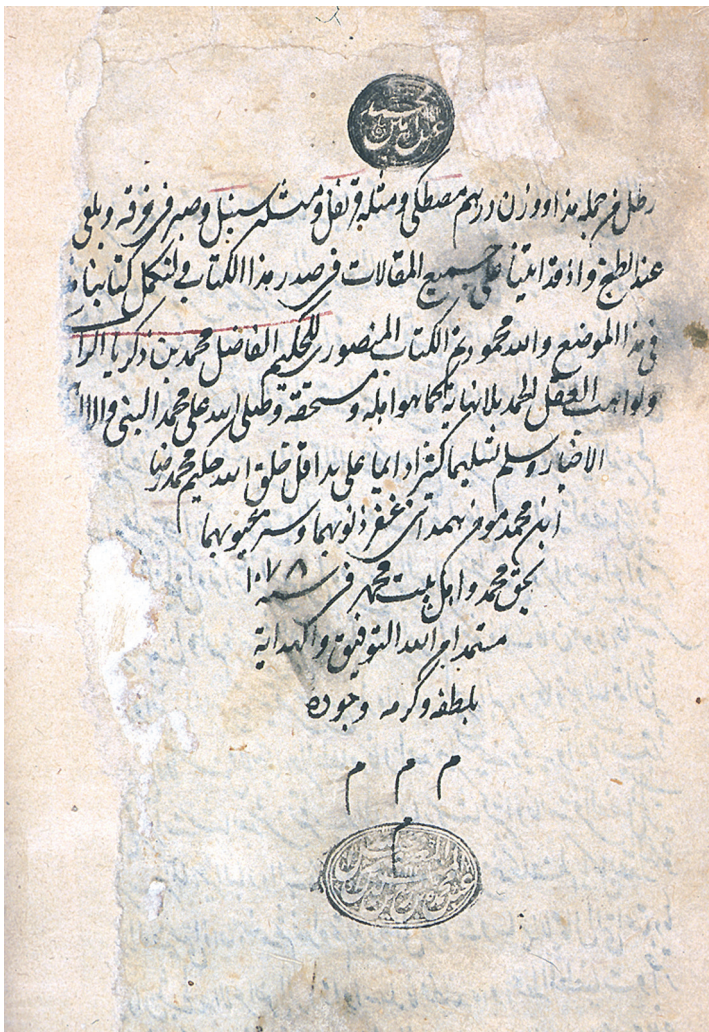 رطل من جمله هذا ووزن درهم مصطكي ومثله قرنفل ومثله سنبل وصبر في خرقه ويلقي
عند الطبخ واذ قد اتينا علي جميع المقالات في صدر هذا الكتاب فلنكمل كتابنا
في هذا الموضع والله محمود تم الكتاب المنصوري للحكيم الفاضل محمد بن زكريا
ولواهب العقل الحمد بلا نهاية كما هو اهله ومستحقه وصلي الله علي محمد النبي
الاخيار وسلم تسليما كثيرا دايما علي يد اقل خلق الله حكيم محمد رضا
ابن محمد مومن همداني غفر ذنوبهما وستر عيوبهما
بحق محمد واهل بيت محمد في سنه ١٠٧٨
مستمدا من الله التوفيق والهداية
بلطفه وكرمه وجوده
م م م
م